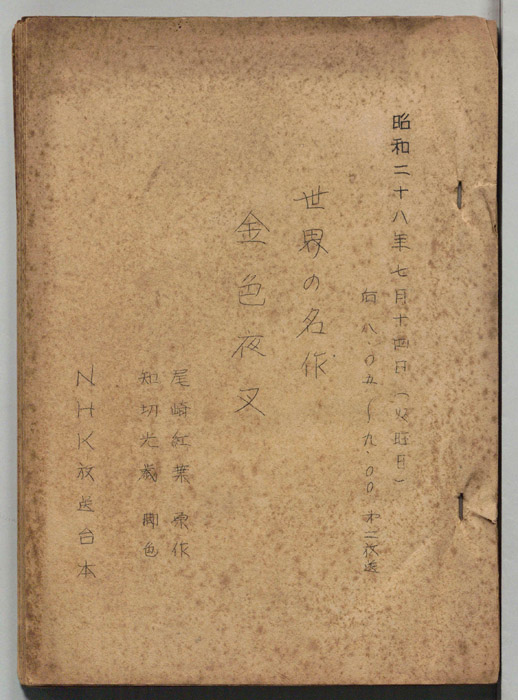 昭和二十八年七月十四日(火曜日)
后八.〇五~九.〇〇 オ二放送
世界の名作
金色夜叉
尾崎紅葉 原作
知切光歳 脚色
NHK放送台本